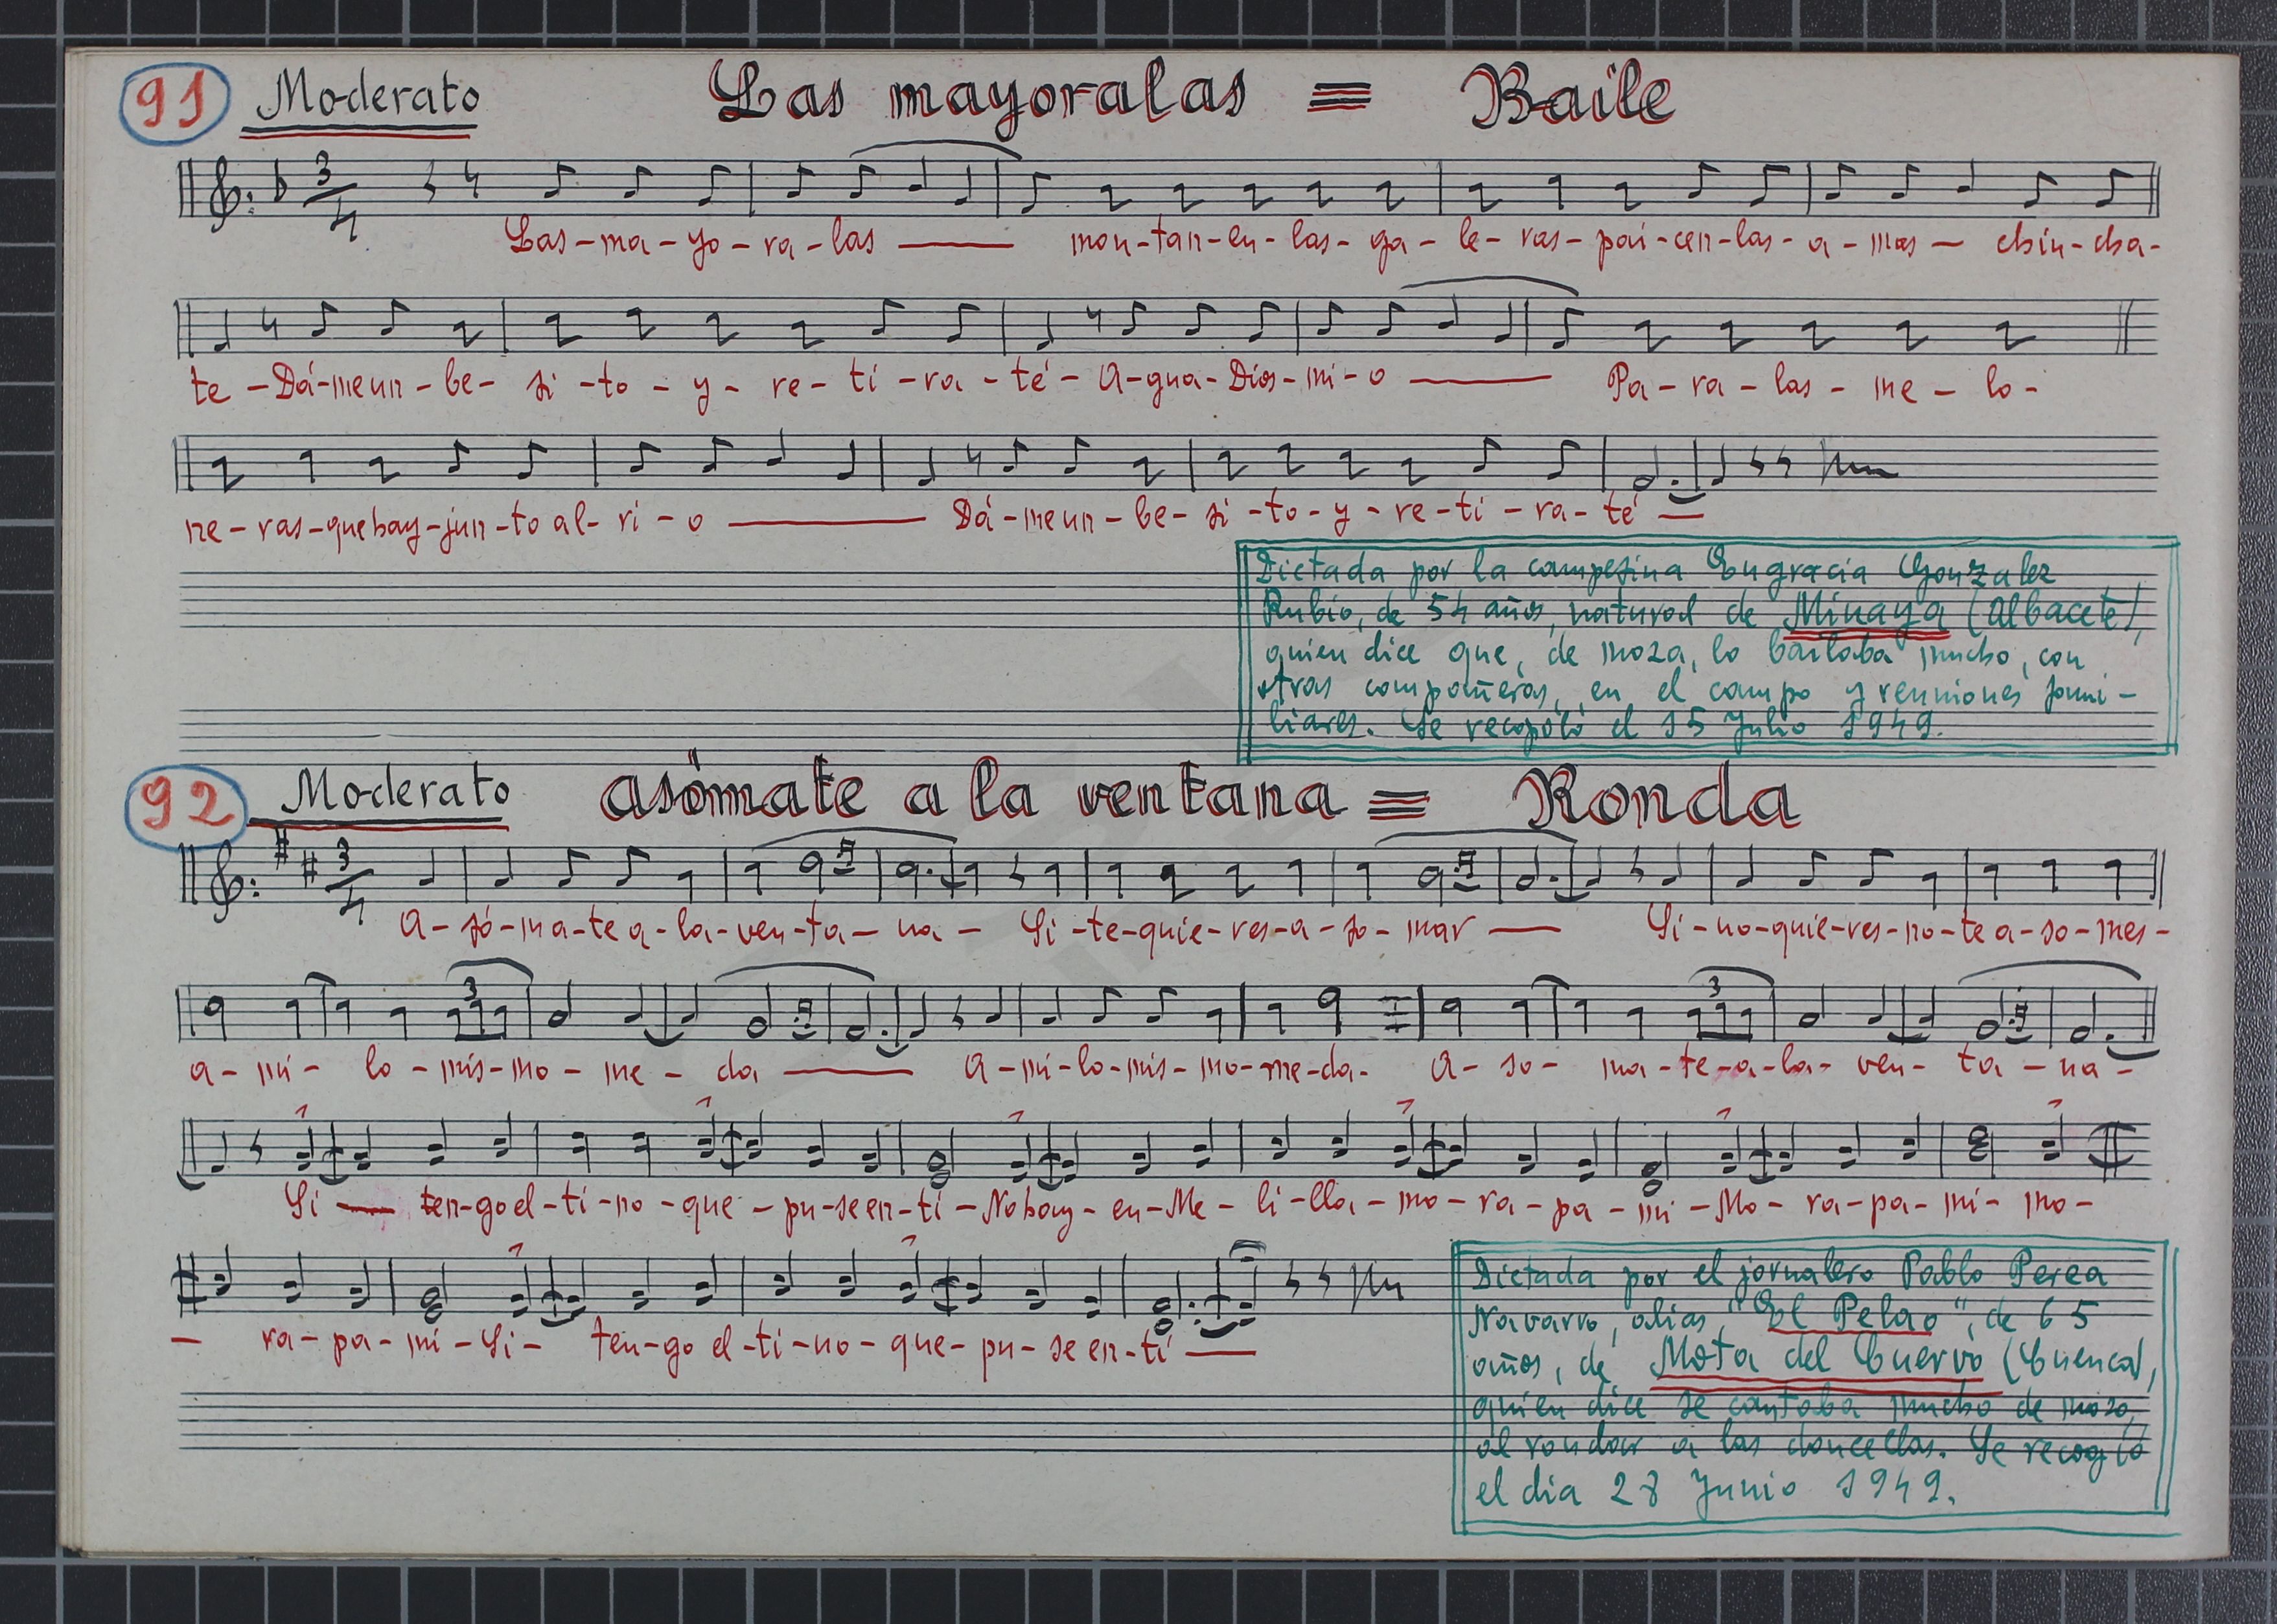 91 Moderato Las mayoralas = Baile
3/4
Las-ma-yo-ra-las — mon-tan-en-las-ga-le-ras-pai-cen-las-a-mas- chin-cha-
te-Dá-meun-be-si-to-y-re-ti-ra-té-A-gua-Dios-mi-o — Pa-ra-las-me-lo-
3
ne-ras-quehay-jun-to al-ri-o — Dá-meun-be-si-to-y-re-ti-ra-té —
Dictada por la campesina Engracia Gonzalez
Rubio, de 54 años, natural de Minaya (Albacete),
quien dice que, de moza, lo bailaba mucho, con
otras compañeras, en el campo y reuniones fami-
liares. Se recopiló el 15 Julio 1949.
92 Moderato Asómate a la ventana = Ronda
3/4
A-só-ma-te a-la-ven-ta-na- Si-te-quie-res-a-so-mar — Si-no-quie-res-no-te a-so-mes-
3 3
a-mi- lo-mis-mo-me-da — A-mi-lo-mis-mo-me-da- A-so- ma-te-a-la- ven- ta-na-
Si — ten-go el-ti-no-que-pu-se en-ti-No hay-en-Me-li-lla-mo-ra-pa-mi-Mo-ra-pa-mi-mo-
— ra-pa-mi-Si- ten-go el-ti-no-que-pu-se en-ti —
Dictada por el jornalero Pablo Perea
Navarro, alias, "El Pelao", de 65
años, de Mota del Cuervo (Cuenca),
quien dice se cantaba mucho de mozo,
al rondar a las doncellas. Se recogió
el dia 28 Junio 1949.